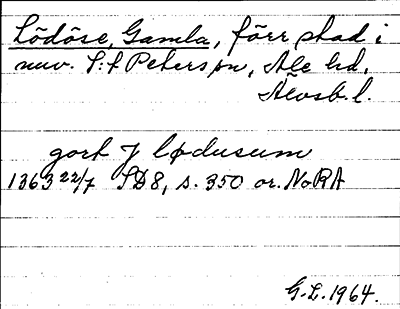 Lödöse, Gamla, förr stad i
nuv. S:t Peters sn, Ale hd,
Älvsb. l.
gort J lødusum
1363 22/7 SD 8, s. 350 or. NoRA
G.L. 1964.